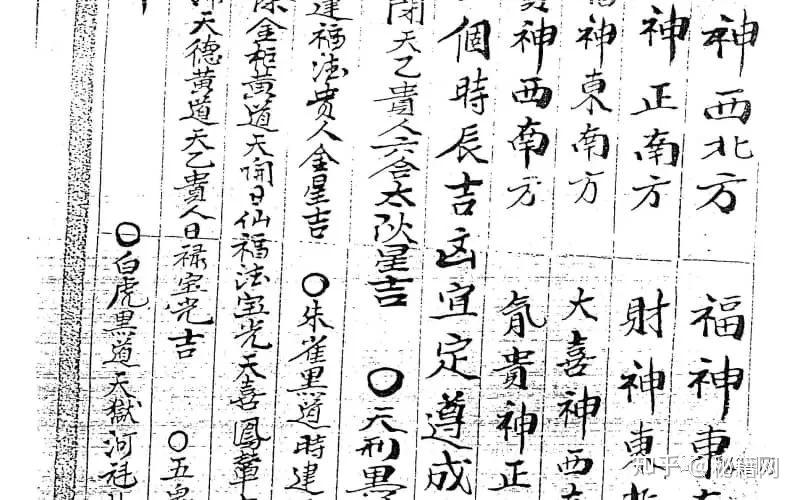 神西北方　福神東
神正南方　財神東
神東南方　大喜神西
神西南方　貴神正
個時辰吉凶宜定遵成
閉天乙貴人六合太阴星吉　〇天刑黑
建福法贵人金星吉　〇朱雀黑道時建
金柜黄道天開日仙福法宝光天喜鳳輦
天德黄道天乙貴人日禄宝光吉　〇五鬼
〇白虎黑道天獄河
知乎 @秘籍网